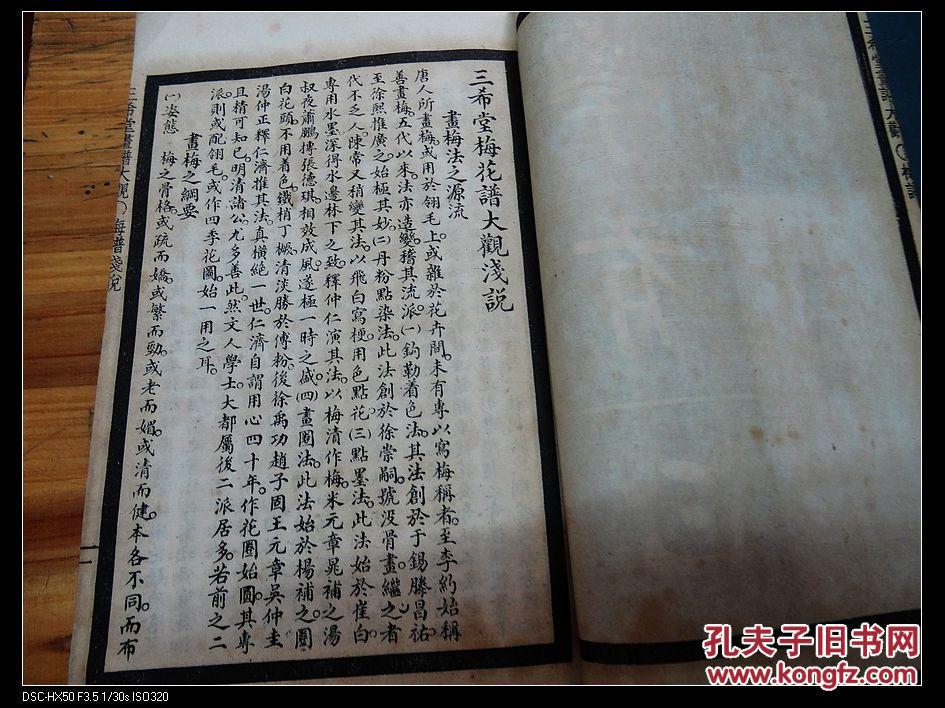 三希堂梅花譜大觀淺説
畫梅法之源流
唐人所畫梅。或用於翎毛上。或雜於花卉間。未有專以寫梅稱者。至李約始稱
善畫梅。五代以來。法亦遞變。稽其流派。(一)鈎勒着色法。其法創於于錫。滕昌祐
至徐熙推廣之。始極其妙。(二)丹粉點染法。此法創於徐崇嗣。號没骨畫。繼之者
代不乏人。陳常又稍變其法。以飛白寫梗。用色點花。(三)點墨法。此法始於崔白
專用水墨。深得水邊林下之致。釋仲仁演其法。以梅漬作梅。米元章晁補之湯
叔夜蕭鵬摶張德琪。相效成風。遂極一時之盛。(四)畫圈法。此法始於楊補之。圈
白花頭。不用着色。鐵梢丁橛。清淡勝於傅粉。後徐禹功趙子固王元章吳仲圭
湯仲正釋仁濟推其法。真橫絕一世。仁濟自謂用心四十年。作花圈始圓。其專
且精可知已。明清諸公。尤多善此。然文人學士。大都屬後二派居多。若前之二
派。則或配翎毛。或作四季花圖。始一用之耳。
畫梅之綱要
(一)姿態　梅之骨格。或疏而嬌。或繁而勁。或老而媚。或清而健。本各不同。而布
三希堂畫譜大觀(一)梅譜淺説
一
孔夫子旧书网
www.kongfz.com
DSC-HX50 F3.5 1/30s ISO320